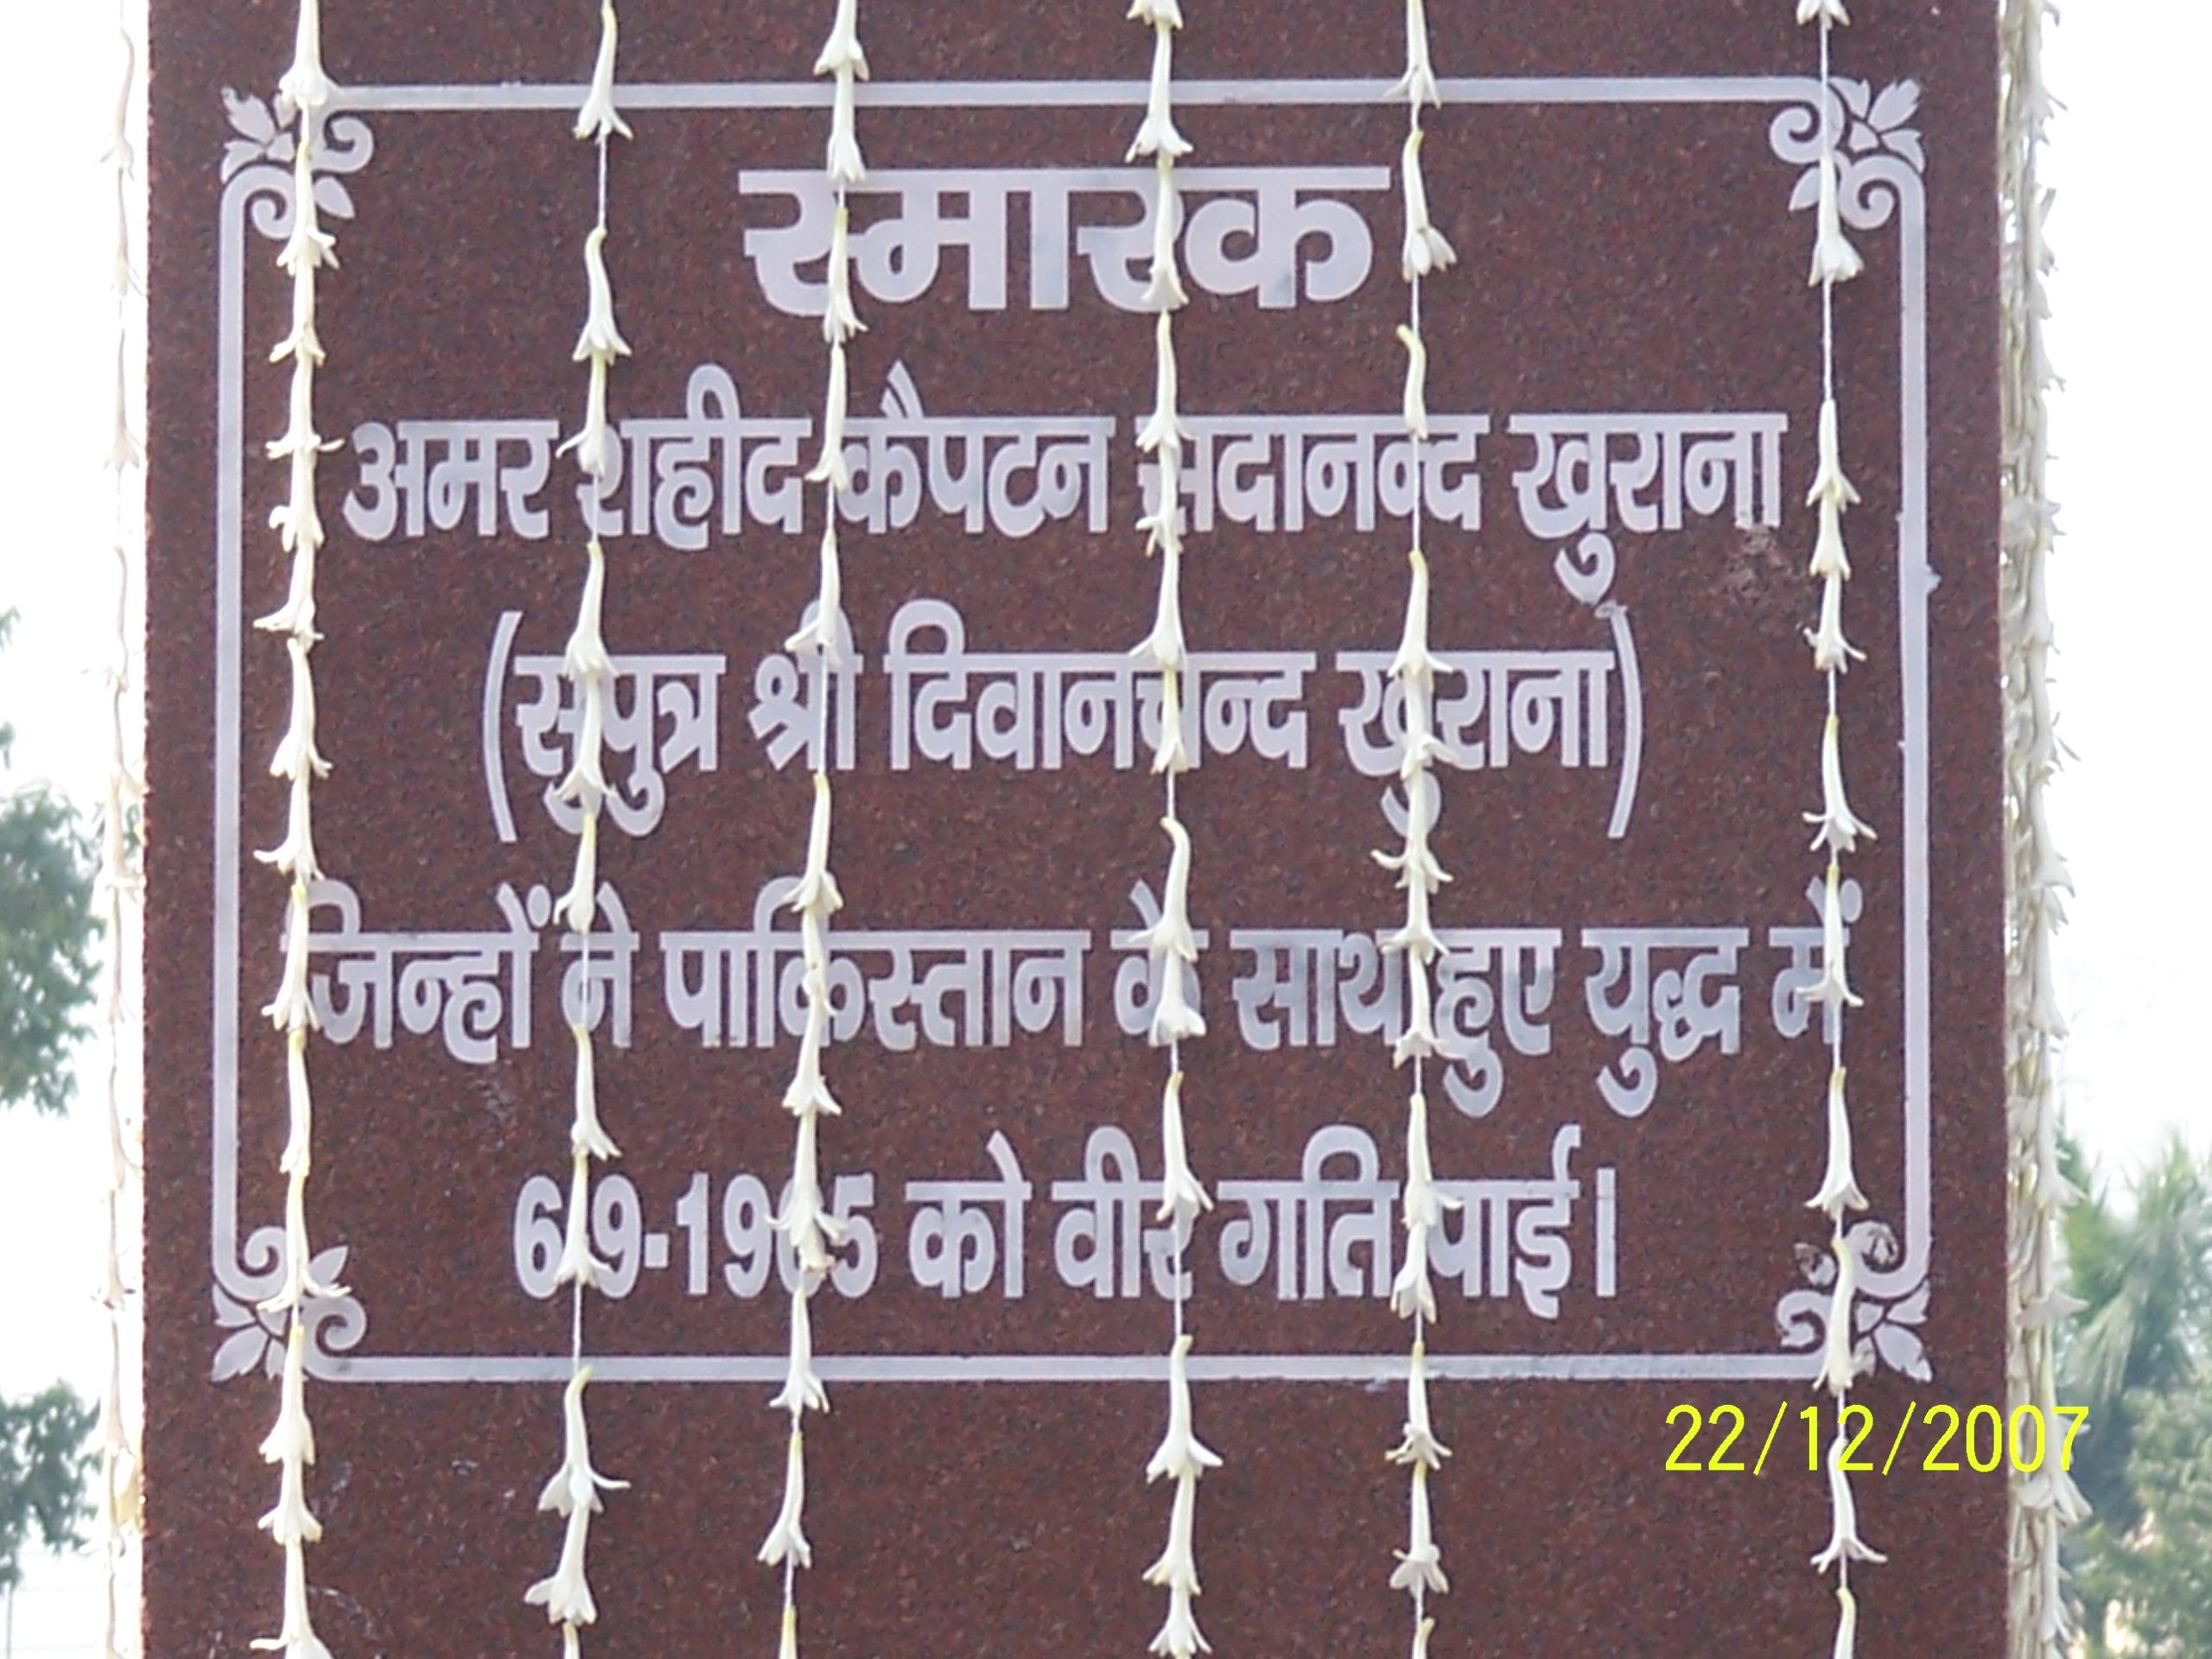 स्मारक
अमर शहीद कैपटन सदानन्द खुराना
(सुपुत्र श्री दिवानचन्द खुराना)
जिन्हों ने पाकिस्तान के साथ हुए युद्ध में
6-9-1965 को वीर गति पाई।
22/12/2007